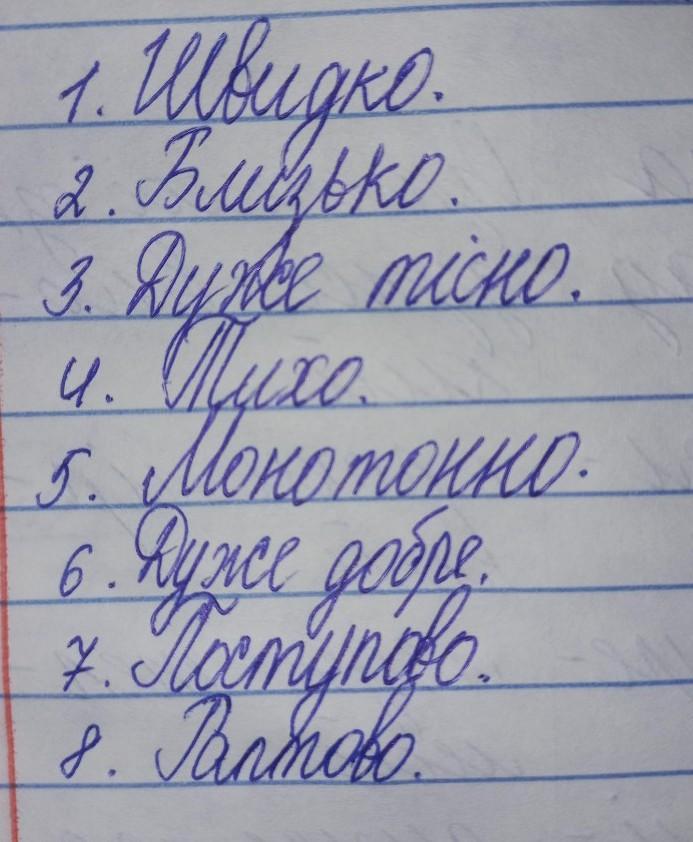 1. Швидко.
2. Близько.
3. Дуже тісно.
4. Тихо.
5. Монотонно.
6. Дуже добре.
7. Поступово.
8. Раптово.